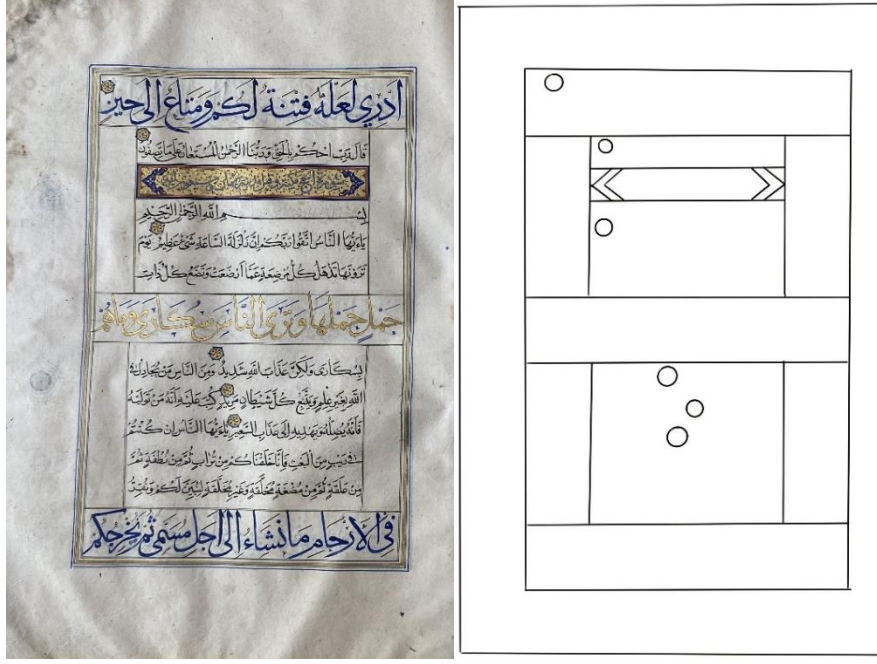 اَدْرِي لَعَلَّهُ فِتْنَةٌ لَكُمْ وَمَتَاعٌ اِلَى حِينٍ
قَالَ رَبِّ احْكُمْ بِالْحَقِّ وَرَبُّنَا الرَّحْمٰنُ الْمُسْتَعَانُ عَلَى مَا تَصِفُونَ
سورة الحج
بِسْمِ اللّٰهِ الرَّحْمٰنِ الرَّحِيمِ
يَاءَيُّهَا النَّاسُ اتَّقُوا رَبَّكُمْ اِنَّ زَلْزَلَةَ السَّاعَةِ شَيْءٌ عَظِيمٌ يَوْمَ
تَرَوْنَهَا تَذْهَلُ كُلُّ مُرْضِعَةٍ عَمَّا اَرْضَعَتْ وَتَضَعُ كُلُّ ذَاتِ
حَمْلٍ حَمْلَهَا وَتَرَى النَّاسَ سُكَارَى وَمَا هُمْ
بِسُكَارَى وَلٰكِنَّ عَذَابَ اللّٰهِ شَدِيدٌ وَمِنَ النَّاسِ مَنْ يُجَادِلُ فِي
اللّٰهِ بِغَيْرِ عِلْمٍ وَيَتَّبِعُ كُلَّ شَيْطَانٍ مَرِيدٍ كُتِبَ عَلَيْهِ اَنَّهُ مَنْ تَوَلَّاهُ
فَاَنَّهُ يُضِلُّهُ وَيَهْدِيهِ اِلَى عَذَابِ السَّعِيرِ يَاءَيُّهَا النَّاسُ اِنْ كُنْتُمْ
فِي رَيْبٍ مِنَ الْبَعْثِ فَاِنَّا خَلَقْنَاكُمْ مِنْ تُرَابٍ ثُمَّ مِنْ نُطْفَةٍ ثُمَّ
مِنْ عَلَقَةٍ ثُمَّ مِنْ مُضْغَةٍ مُخَلَّقَةٍ وَغَيْرِ مُخَلَّقَةٍ لِنُبَيِّنَ لَكُمْ وَنُقِرُّ
فِي الْاَرْحَامِ مَا نَشَاءُ اِلَى اَجَلٍ مُسَمًّى ثُمَّ يُخْرِجُكُمْ